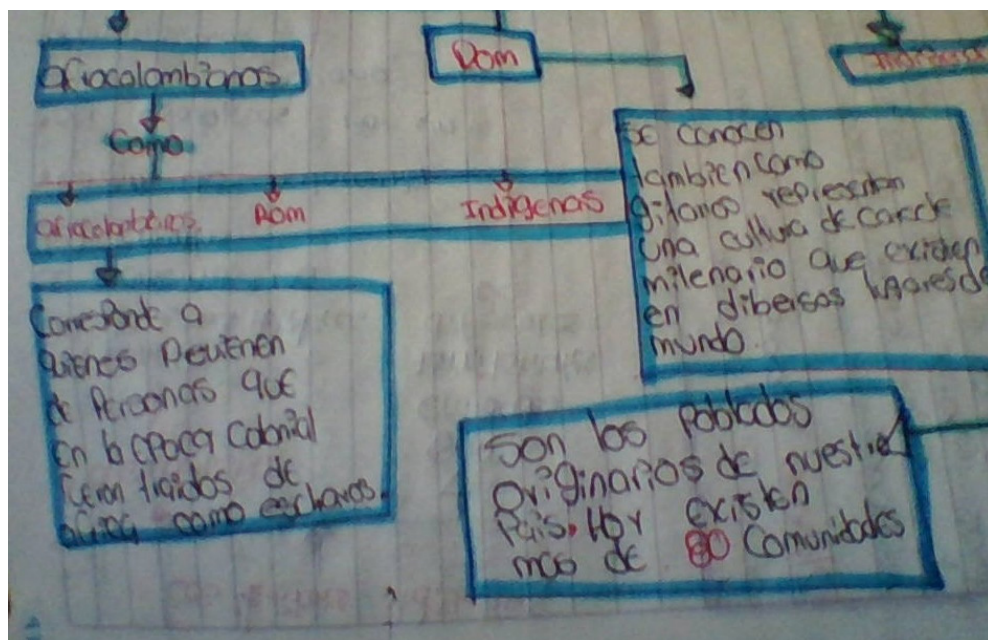 afrocolombianos
Rom
Como
afrocolombianos
Rom
Indigenas
se conocen
tambien como
gitanos representan
una cultura de
milenario que existen
en dibersos lugares de
mundo.
Corresponde a
quienes
de Personas que
En la epoca Colonial
traidos de
africa como esclavos
Son los Poblados
originarios de nuestro
Pais. Hoy existen
mas de 80 Comunidades